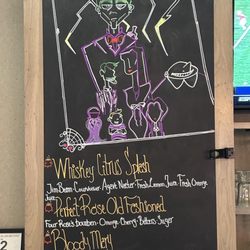 Whiskey Citrus Splash
Jim Beam - Cointreau - Agave Nectar - Fresh Lemon Juice - Fresh Orange
Juice
Perfect Rose Old Fashioned
Four Roses Bourbon - Orange - Cherry - Bitters - Sugar
Bloody Mary
2